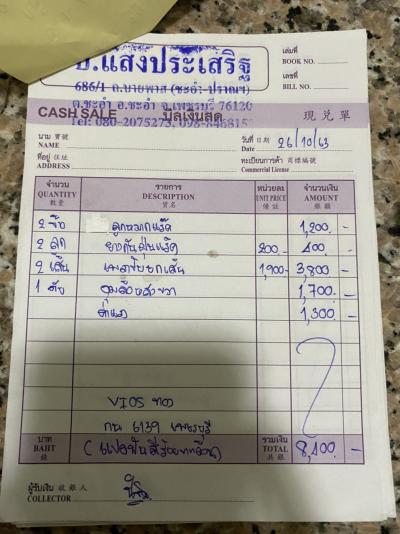 ช.แสงประเสริฐ
686/1 ถ.บายพาส (ชะอำ-ปราณฯ)
ต.ชะอำ อ.ชะอำ จ.เพชรบุรี 76120
Tel: 080-2075273, 098-8468153
เล่มที่
BOOK NO.
เลขที่
BILL NO.
CASH SALE บิลเงินสด 現兑單
นาม 寶號
NAME
วันที่ 日期 26/10/63
Date
ที่อยู่ 住址
ADDRESS
ทะเบียนการค้า 商標編號
Commercial License
จำนวน รายการ หน่วยละ จำนวนเงิน
QUANTITY DESCRIPTION UNIT PRICE AMOUNT
數量 貨名 備註 銀額
2 ลูกหมากแร็ค 1,200.-
2 ลูก ยางกันฝุ่นแร็ค 200.- 400.-
2 เส้น เพลาขับยกเส้น 1,900.- 3,800.-
1 ตัว 1,700.-
ค่าแรง 1,300.-
VIOS ทอง
กน 6139 เพชรบุรี
บาท
BAHT
錢
(แปดพันสี่ร้อยบาทถ้วน)
รวมเงิน
TOTAL
共銀
8,400.-
ผู้รับเงิน 收銀人
COLLECTOR